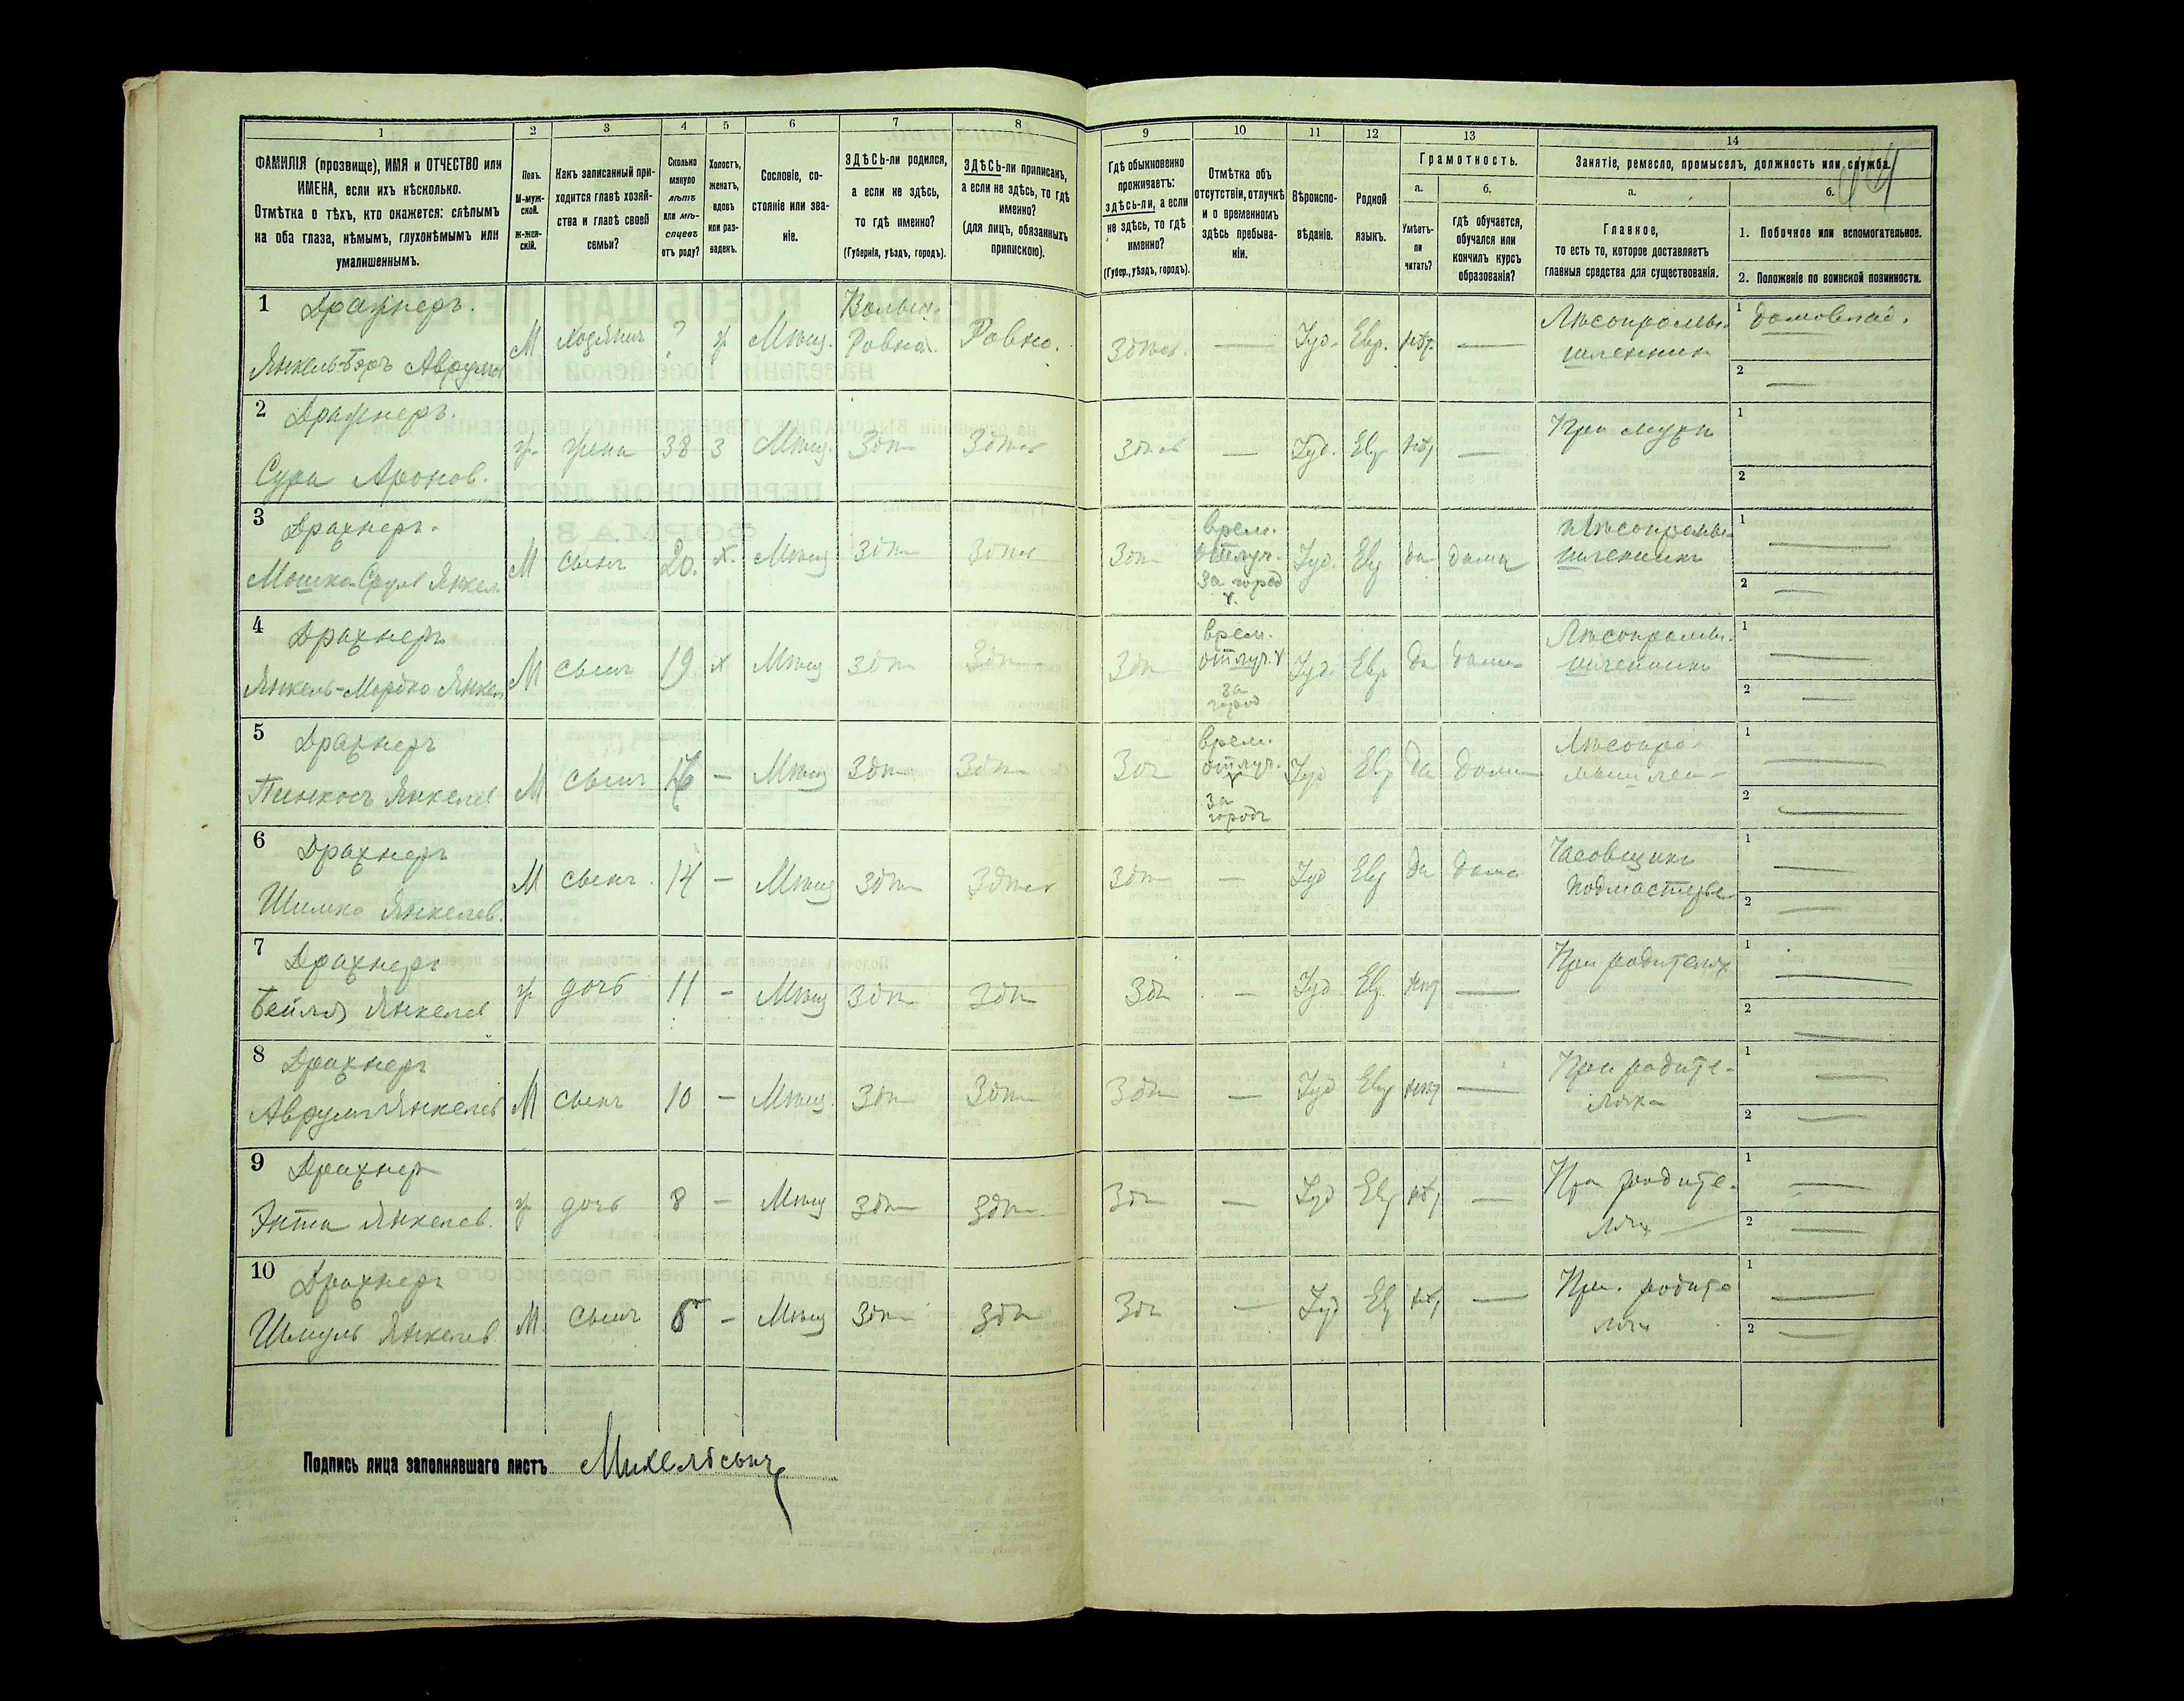 1 2 3 4 5 6 7 8 9 10 11 12 13 14
ФАМИЛІЯ (прозвище), ИМЯ и ОТЧЕСТВО или
ИМЕНА, если ихъ нѣсколько.
Отмѣтка о тѣхъ, кто окажется: слѣпымъ
на оба глаза, нѣмымъ, глухонѣмымъ или
умалишеннымъ.
Полъ.
М-муж-
ской.
ж-жен-
скій.
Какъ записанный при-
ходится главѣ хозяй-
ства и главѣ своей
семьи?
Сколько
минуло
лѣтъ
или мѣ-
сяцевъ
отъ роду?
Холостъ,
женатъ,
вдовъ
или раз-
веденъ.
Сословіе, со-
стояніе или зва-
ніе.
ЗДѢСЬ-ли родился,
а если не здѣсь,
то гдѣ именно?
(Губернія, уѣздъ, городъ).
ЗДѢСЬ-ли приписанъ,
а если не здѣсь, то гдѣ
именно?
(для лицъ, обязанныхъ
припискою).
Гдѣ обыкновенно
проживаетъ:
здѣсь-ли, а если
не здѣсь, то гдѣ
именно?
(Губер., уѣздъ, городъ).
Отмѣтка объ
отсутствіи, отлучкѣ
и о временномъ
здѣсь пребыва-
ніи.
Вѣроиспо-
вѣданіе.
Родной
языкъ.
Грамотность.
а.
Умѣетъ-
ли
читать?
б.
гдѣ обучается,
обучался или
кончилъ курсъ
образованія?
Занятіе, ремесло, промыселъ, должность или служба.
а.
Главное,
то есть то, которое доставляетъ
главныя средства для существованія.
б.
1. Побочное или вспомогательное.
2. Положеніе по воинской повинности.
1 Драхнеръ.
Янкель-Беръ Аврумов
М Хозяинъ ? ж Мѣщ. Волын. Ровна. Ровно. Здѣсь. — Іуд. Евр. нѣт. —
Лѣсопромы-
шленникъ
1 домовлад.
2 —
2 Драхнеръ.
Сура Аронов.
ж. жена 38 з Мѣщ. Здѣ Здѣсь Здѣсь — Іуд. Евр нѣт —
При мужѣ
1
2
3 Драхнеръ.
Мошко-Сруль Янкел.
М сынъ 20. х. Мѣщ здѣ здѣс Здѣ
врем.
отлуч.
за город
Іуд. Евр да дома
Лѣсопромы-
шленникъ
1 —
2 —
4 Драхнеръ
Янкель-Мордко Янкел
М сынъ 19 х Мѣщ здѣ Здѣ Здѣ
врем.
отлуч.
за
город
Іуд. Евр да дома
Лѣсопромы-
шленникъ
1 —
2 —
5 Драхнеръ
Пинкосъ Янкелев
М сынъ 16 — Мѣщ Здѣ Здѣ Здѣ
врем.
отлуч.
за
городъ
Іуд Евр да дома
Лѣсопро-
мышлен-
1 —
2 —
6 Драхнеръ
Шимко Янкелев.
М сынъ 14 — Мѣщ здѣ здѣсь здѣ — Іуд Евр да дома
Часовщикъ
подмастерье
1 —
2 —
7 Драхнеръ
Бейля Янкелев
ж дочь 11 — Мѣщ здѣ здѣ здѣ — Іуд Евр. нѣт —
При родителях
1 —
2 —
8 Драхнеръ
Аврумъ Янкелев
М сынъ 10 — Мѣщ. здѣ здѣ здѣ — Іуд Евр нѣт —
При родите-
ляхъ
1 —
2 —
9 Драхнеръ
Энта Янкелев.
ж дочь 8 — Мѣщ здѣ здѣ здѣ — Іуд Евр нѣт —
При родите-
лях
1 —
2 —
10 Драхнеръ
Шмуль Янкелев
М сынъ — Мѣщ здѣ здѣ здѣ — Іуд Евр нѣт —
При. родите
лях
1 —
2 —
Подпись лица заполнявшаго листъ